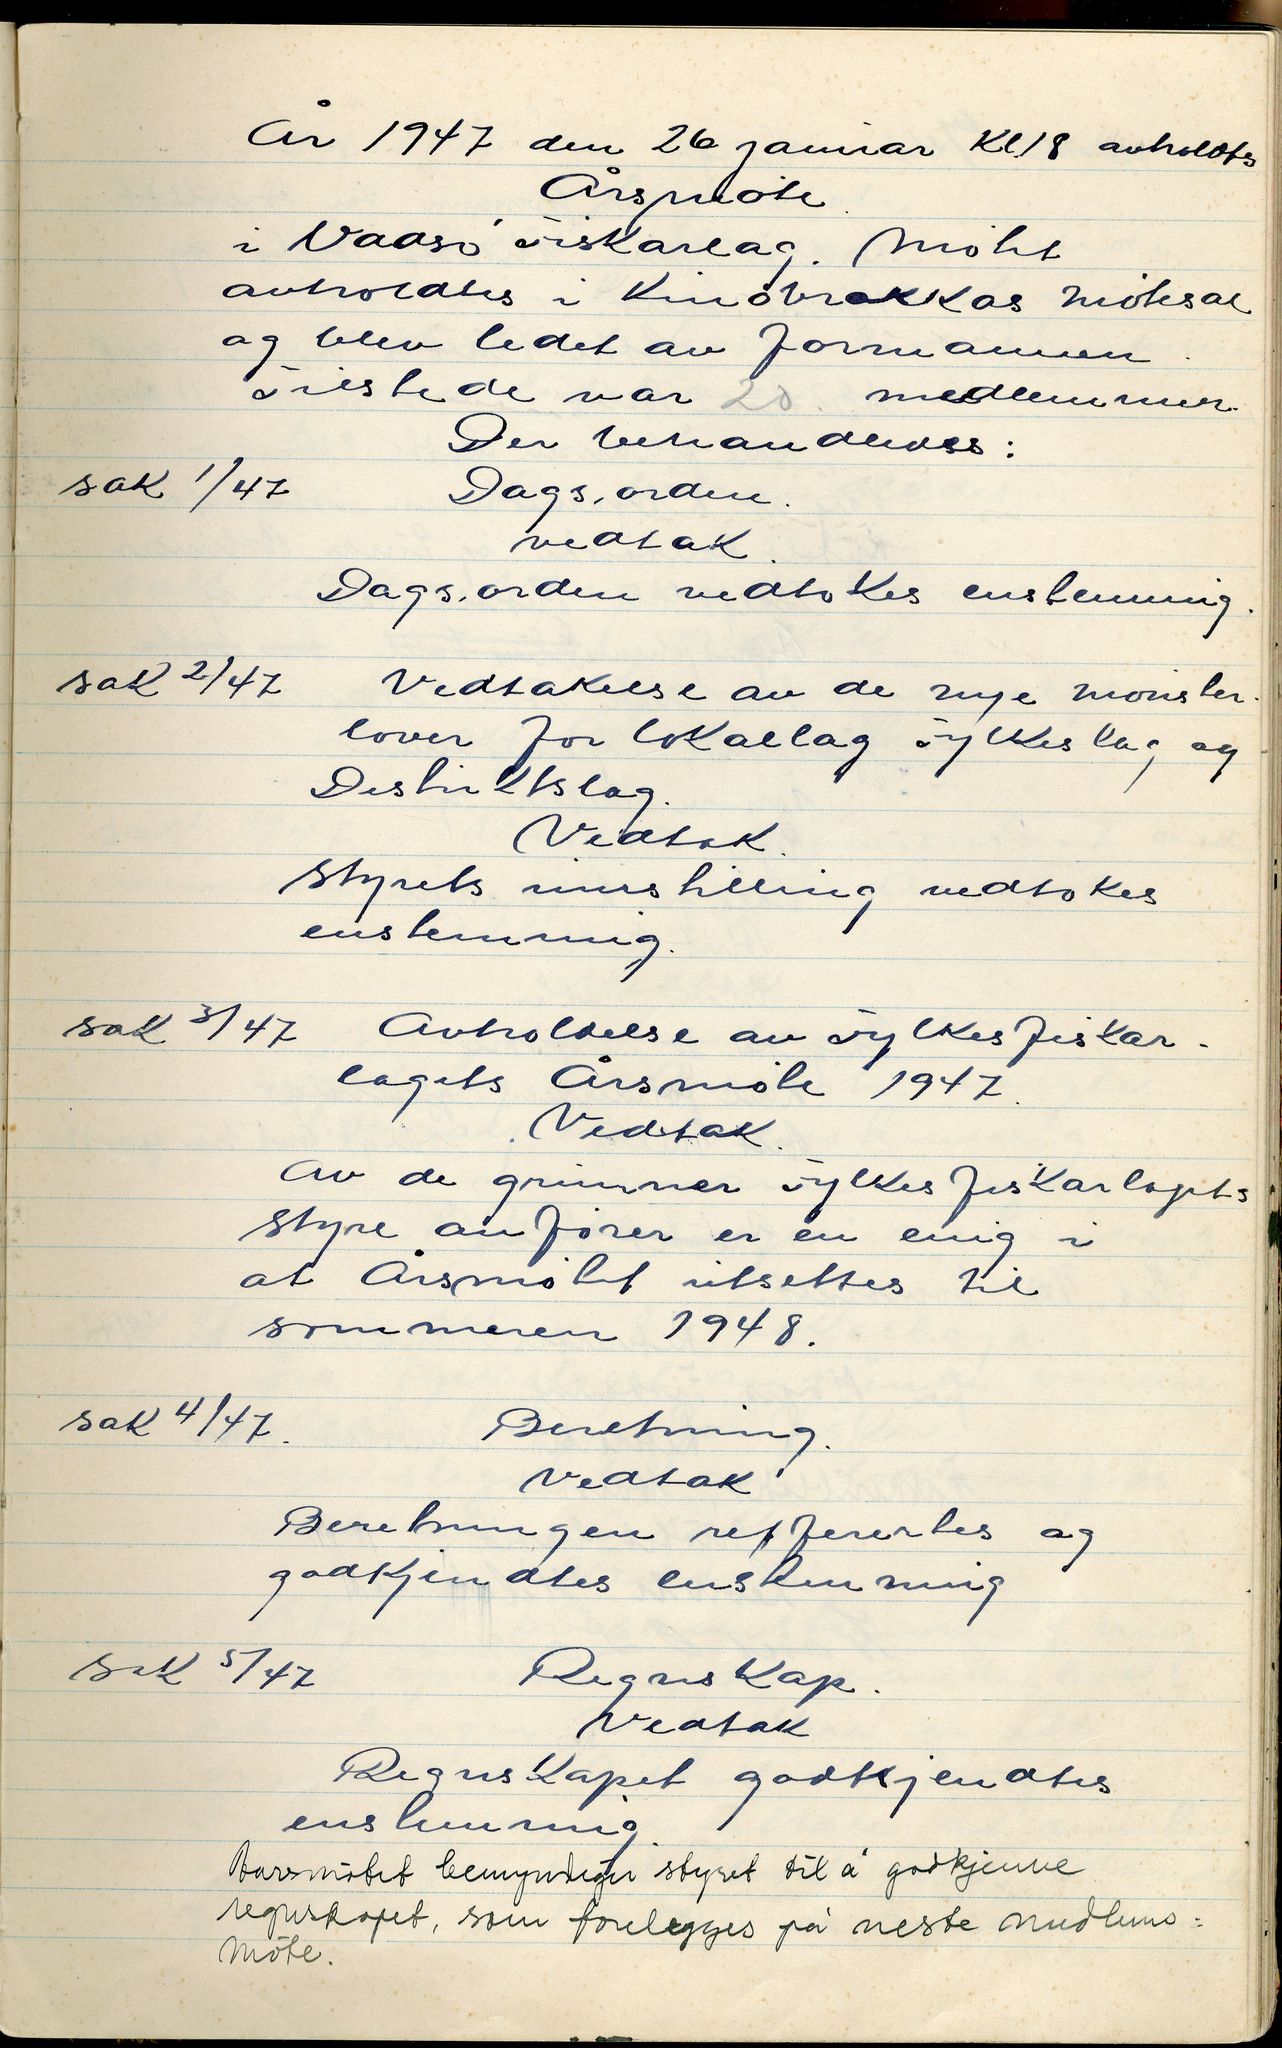 År 1947 den 26 januar Kl 18 avholdtes
Årsmøte
i Vaagsø Fiskarlag. Møtet
avholdtes i Kinobrakkas møtesal
og blev ledet av formannen.
Tilstede var 20. medlemmer.
Der behandledes:
sak 1/47 Dags.orden.
vedtak.
Dags.orden vedtokes enstemmig.
sak 2/47 Vedtakelse av de nye mønster-
lover for lokallag Fylkeslag og
Distriktslag.
Vedtak.
Styrets innstilling vedtokes
enstemmig.
sak 3/47 Avholdelse av Fylkesfiskar-
lagets Årsmøte 1947.
Vedtak.
Av de grunner Fylkesfiskarlagets
styre anfører er en enig i
at Årsmøtet utsettes til
sommeren 1948.
sak 4/47. Beretning.
Vedtak
Beretningen referertes og
godkjendtes enstemmig
sak 5/47 Regnskap.
Vedtak
Regnskapet godkjendtes
enstemmig.
Årsmøtet bemyndiger styret til å godkjenne
regnskapet, som forelegges på neste medlems=
møte.